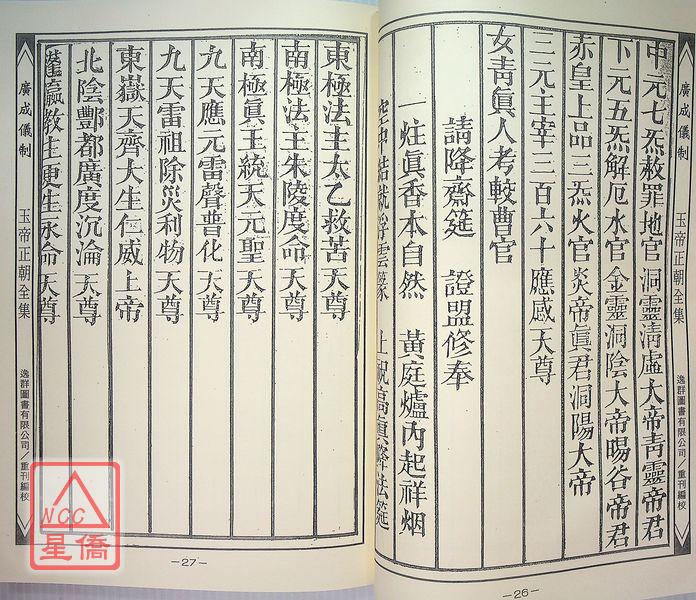 廣成儀制
玉帝正朝全集
逸群圖書有限公司／重刊編校
中元七炁赦罪地官 洞靈清虛大帝青靈帝君
下元五炁解厄水官 金靈洞陰大帝暘谷帝君
赤皇上品三炁火官 炎帝眞君洞陽大帝
三元主宰三百六十應感天尊
女青眞人考較曹官
請降齋筵 證盟修奉
一炷眞香本自然 黃庭爐內起祥烟
空中結就浮雲篆 上祝高眞降法筵
—26—
東極法主太乙救苦天尊
南極法主朱陵度命天尊
南極眞王統天元聖天尊
九天應元雷聲普化天尊
九天雷祖除災利物天尊
東嶽天齊大生仁威上帝
北陰酆都廣度沉淪天尊
教主更生永命天尊
廣成儀制
玉帝正朝全集
逸群圖書有限公司／重刊編校
—27—
NCC
星僑